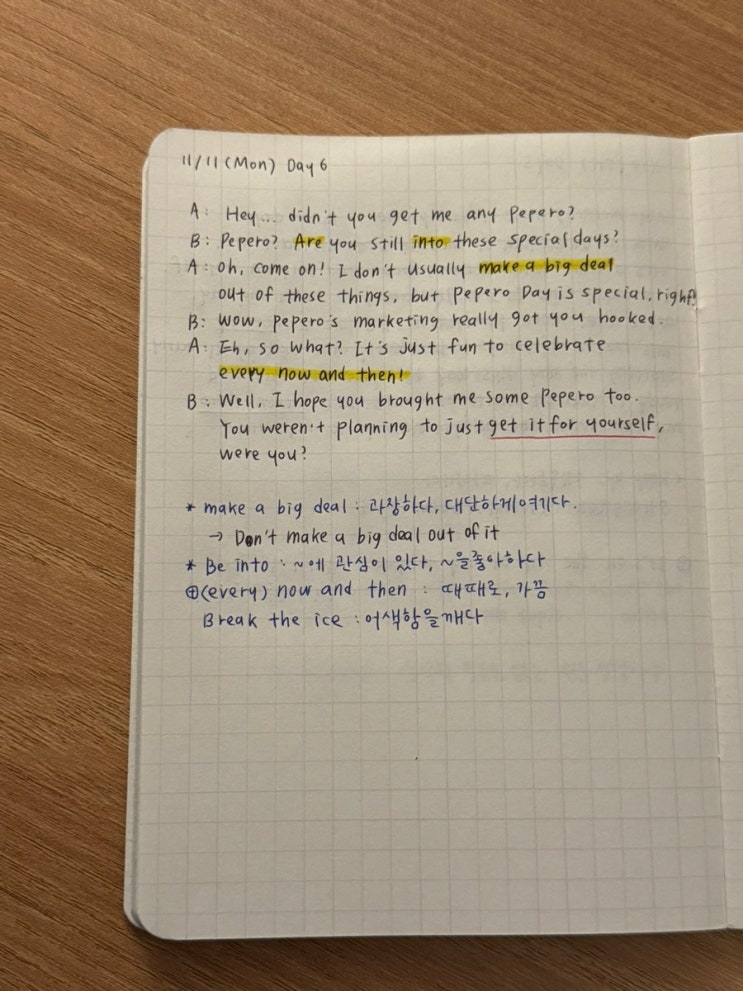 11/11 (Mon) Day 6
A: Hey... didn't you get me any Pepero?
B: Pepero? Are you still into these special days?
A: Oh, come on! I don't usually make a big deal
out of these things, but Pepero Day is special, right?
B: Wow, Pepero's marketing really got you hooked.
A: Eh, so what? It's just fun to celebrate
every now and then!
B: Well, I hope you brought me some Pepero too.
You weren't planning to just get it for yourself,
were you?
* make a big deal : 과장하다, 대단하게 여기다.
→ Don't make a big deal out of it
* Be into : ~에 관심이 있다, ~을 좋아하다
⊕ (every) now and then : 때때로, 가끔
Break the ice : 어색함을 깨다